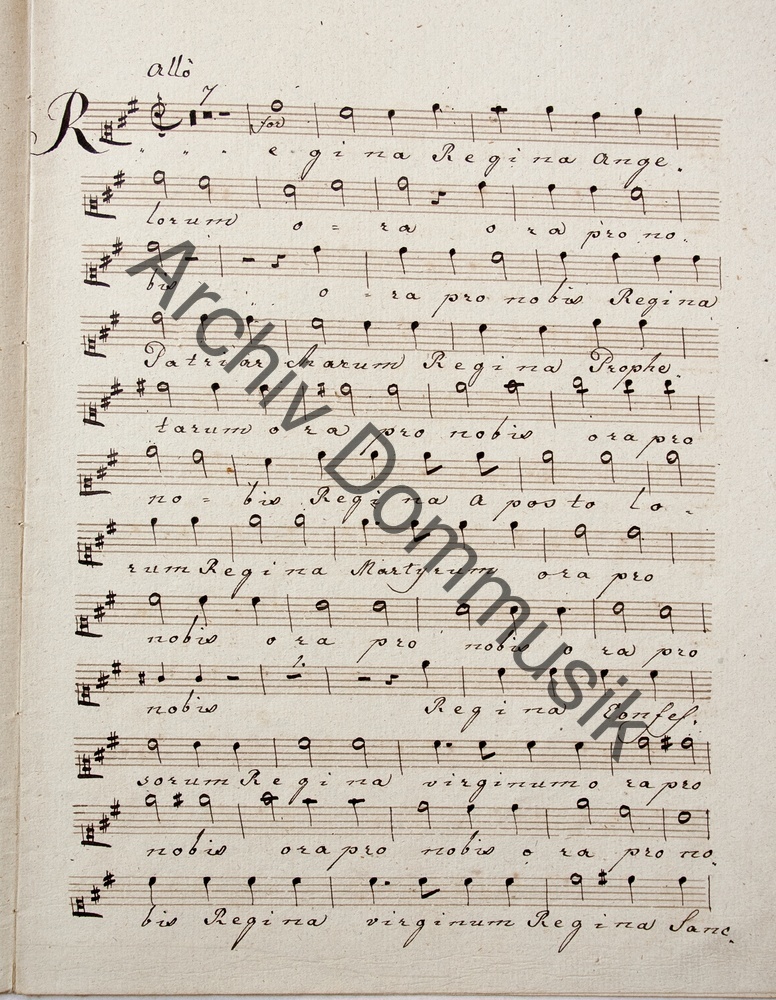 allò
7
for
Regina Regina Ange.
lorum o = ra o ra pro no.
bis o - ra pro nobis Regina
Patriar charum Regina Prophe.
tarum o ra pro nobis ora pro
no = bis Regina aposto lo -
rum Regina Martyrum ora pro
nobis o ra pro nobis o ra pro
1.
nobis Regina Confes.
sorum Regina virginum o ra pro
nobis ora pro nobis o ra pro no.
bis Regina virginum Regina Sanc.
Archiv Dommusik